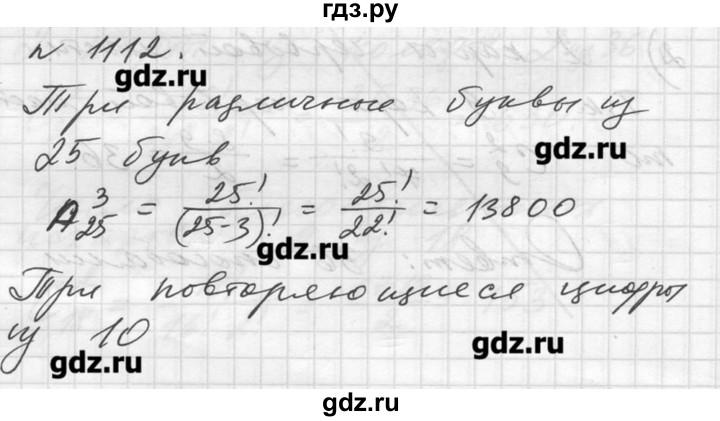 гдз.ру
N 1112.
gdz.ru
Три различные буквы из
gdz.ru
25 букв
A³₂₅ = 25!/(25-3)! = 25!/22! = 13800
gdz.ru
Три повторяющиеся цифры
из 10
gdz.ru
gdz.ru
gdz.ru